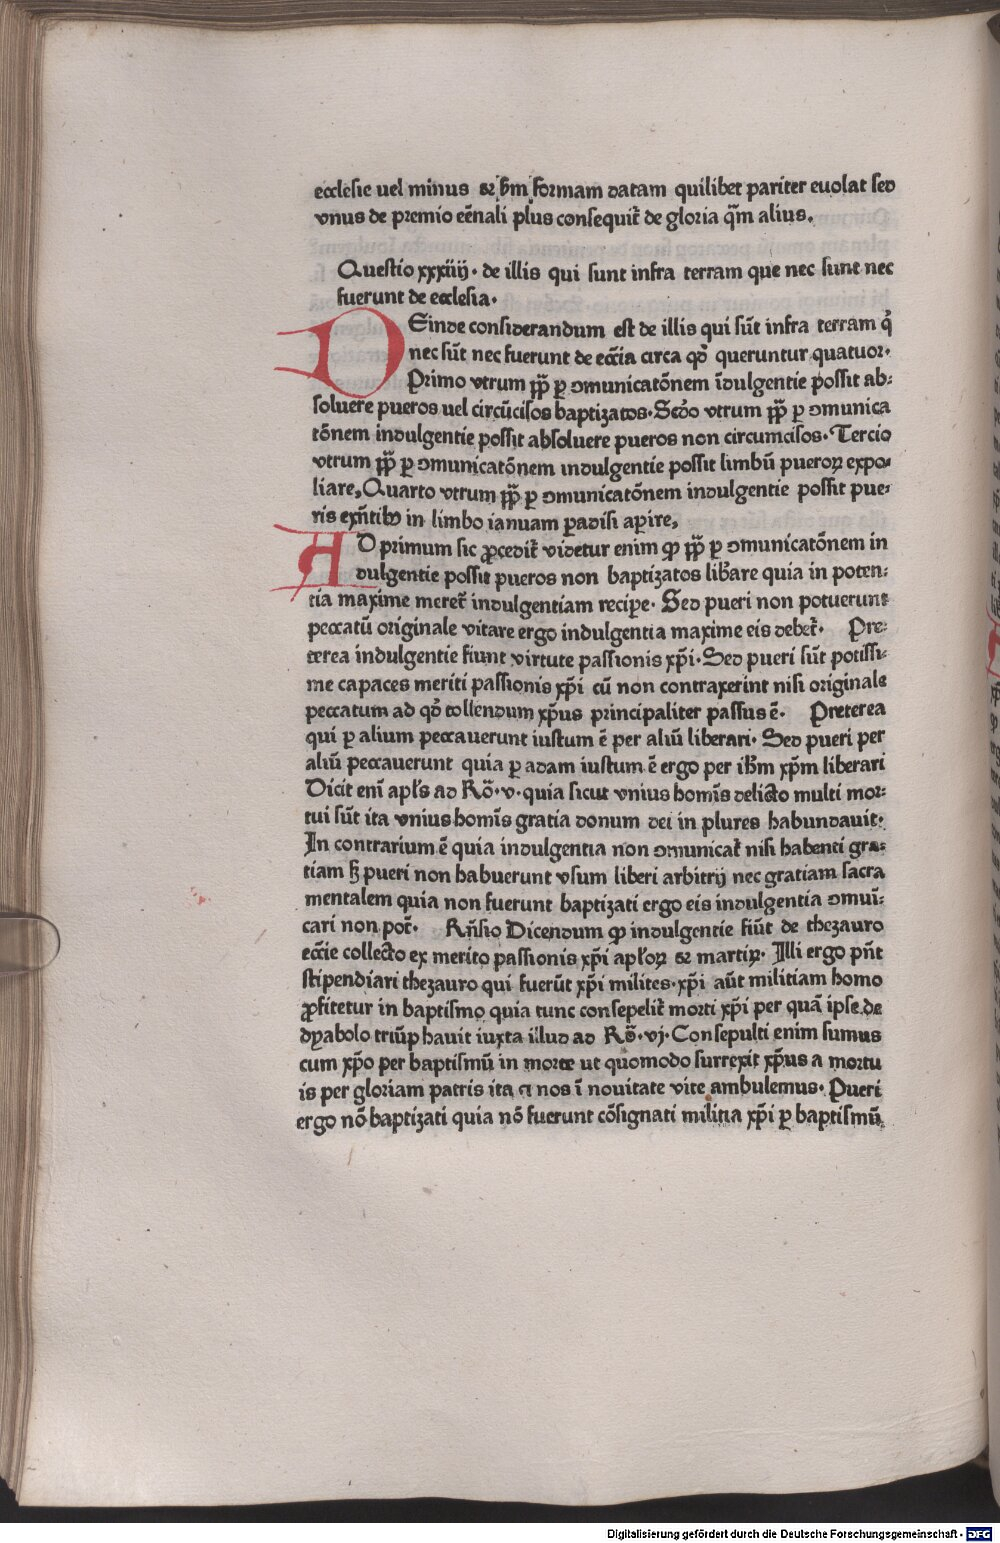 ecclesie uel minus & ẜm formam datam quilibet pariter euolat sed
vnus de premio eēnali plus consequit̄ de gloria q̄m alius.
Questio xxxiiij. de illis qui sunt infra terram que nec sunt nec
fuerunt de ecclesia.
DEinde considerandum est de illis qui sūt infra terram q̄
nec sūt nec fuerunt de ecc̄ia circa qd̄ queruntur quatuor.
Primo vtrum pp̄ ꝑ ꝯmunicatōnem īdulgentie possit ab-
soluere pueros uel circūcisos baptizatos. Scd̄o vtrum pp̄ ꝑ ꝯmunica
tōnem indulgentie possit absoluere pueros non circumcisos. Tercio
vtrum pp̄ ꝑ ꝯmunicatōnem indulgentie possit limbū pueroꝝ expo-
liare, Quarto vtrum pp̄ ꝑ ꝯmunicatōnem indulgentie possit pue-
ris exn̄tibꝫ in limbo ianuam ꝑadisi aꝑire,
AD primum sic ꝓcedit̄ videtur enim ꝙ pp̄ ꝑ ꝯmunicatōnem in
dulgentie possit pueros non baptizatos lib̄are quia in poten-
tia maxime meret̄ indulgentiam reciꝑe. Sed pueri non potuerunt
peccatū originale vitare ergo indulgentia maxime eis debet̄. Pre-
terea indulgentie fiunt virtute passionis xp̄i. Sed pueri sūt potissi-
me capaces meriti passionis xp̄i cū non contraxerint nisi originale
peccatum ad qd̄ tollendum xp̄us principaliter passus ē. Preterea
qui ꝑ alium peccauerunt iustum ē per aliū liberari. Sed pueri per
aliū peccauerunt quia ꝑ adam iustum ē ergo per ih̄m xp̄m liberari
Dicit enī apl̄s ad Rō. v. quia sicut vnius homīs delicto multi mor-
tui sūt ita vnius homīs gratia donum dei in plures habundauit.
In contrarium ē quia indulgentia non ꝯmunicat̄ nisi habenti gra-
tiam sꝫ pueri non habuerunt vsum liberi arbitrij nec gratiam sacra
mentalem quia non fuerunt baptizati ergo eis indulgentia ꝯmuī-
cari non pot̄. Rn̄sio Dicendum ꝙ indulgentie fiūt de thezauro
ecc̄ie collecto ex merito passionis xp̄i apl̄oꝝ & martiꝝ. Illi ergo pn̄t
stipendiari thezauro qui fuerūt xp̄i milites. xp̄i aūt militiam homo
ꝓfitetur in baptismo quia tunc consepelit̄ morti xp̄i per quā ipse de
dyabolo triūphauit iuxta illud ad Rō. vj. Consepulti enim sumus
cum xp̄o per baptismū in morte ut quomodo surrexit xp̄us a mortu
is per gloriam patris ita et nos ī nouitate vite ambulemus. Pueri
ergo nō baptizati quia nō fuerunt cōsignati militia xp̄i ꝑ baptismū
Digitalisierung gefördert durch die Deutsche Forschungsgemeinschaft - DFG